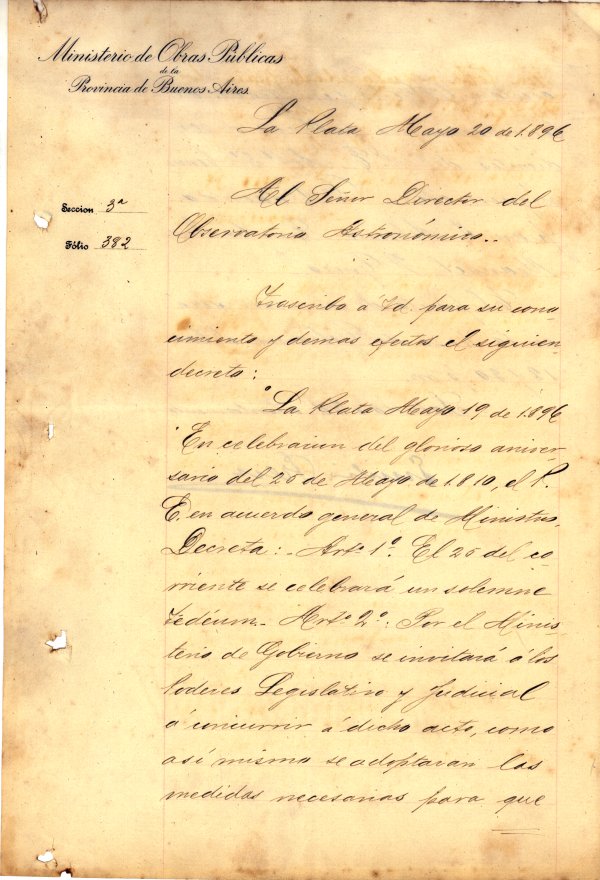 Ministerio de Obras Públicas
de la
Provincia de Buenos Aires.
La Plata Mayo 20 de 1.896
Seccion 3ª
Fólio 382
Al Señor Director del
Observatorio Astronómico..
Trascribo á Vd. para su cono
cimiento y demas efectos el siguien
decreto:
"La Plata Mayo 19 de 1.896
"En celebracion del glorioso aniver-
sario del 25 de Mayo de 1.810, el P.
E. en acuerdo general de Ministros.
Decreta: Artº 1º. El 25 del co-
rriente se celebrará un solemne
Tedéum. Artº 2º. Por el Minis-
terio de Gobierno se invitará a los
Poderes Legislativo y Judicial
á concurrir á dicho acto, como
así mismo se adoptaran las
medidas necesarias para que